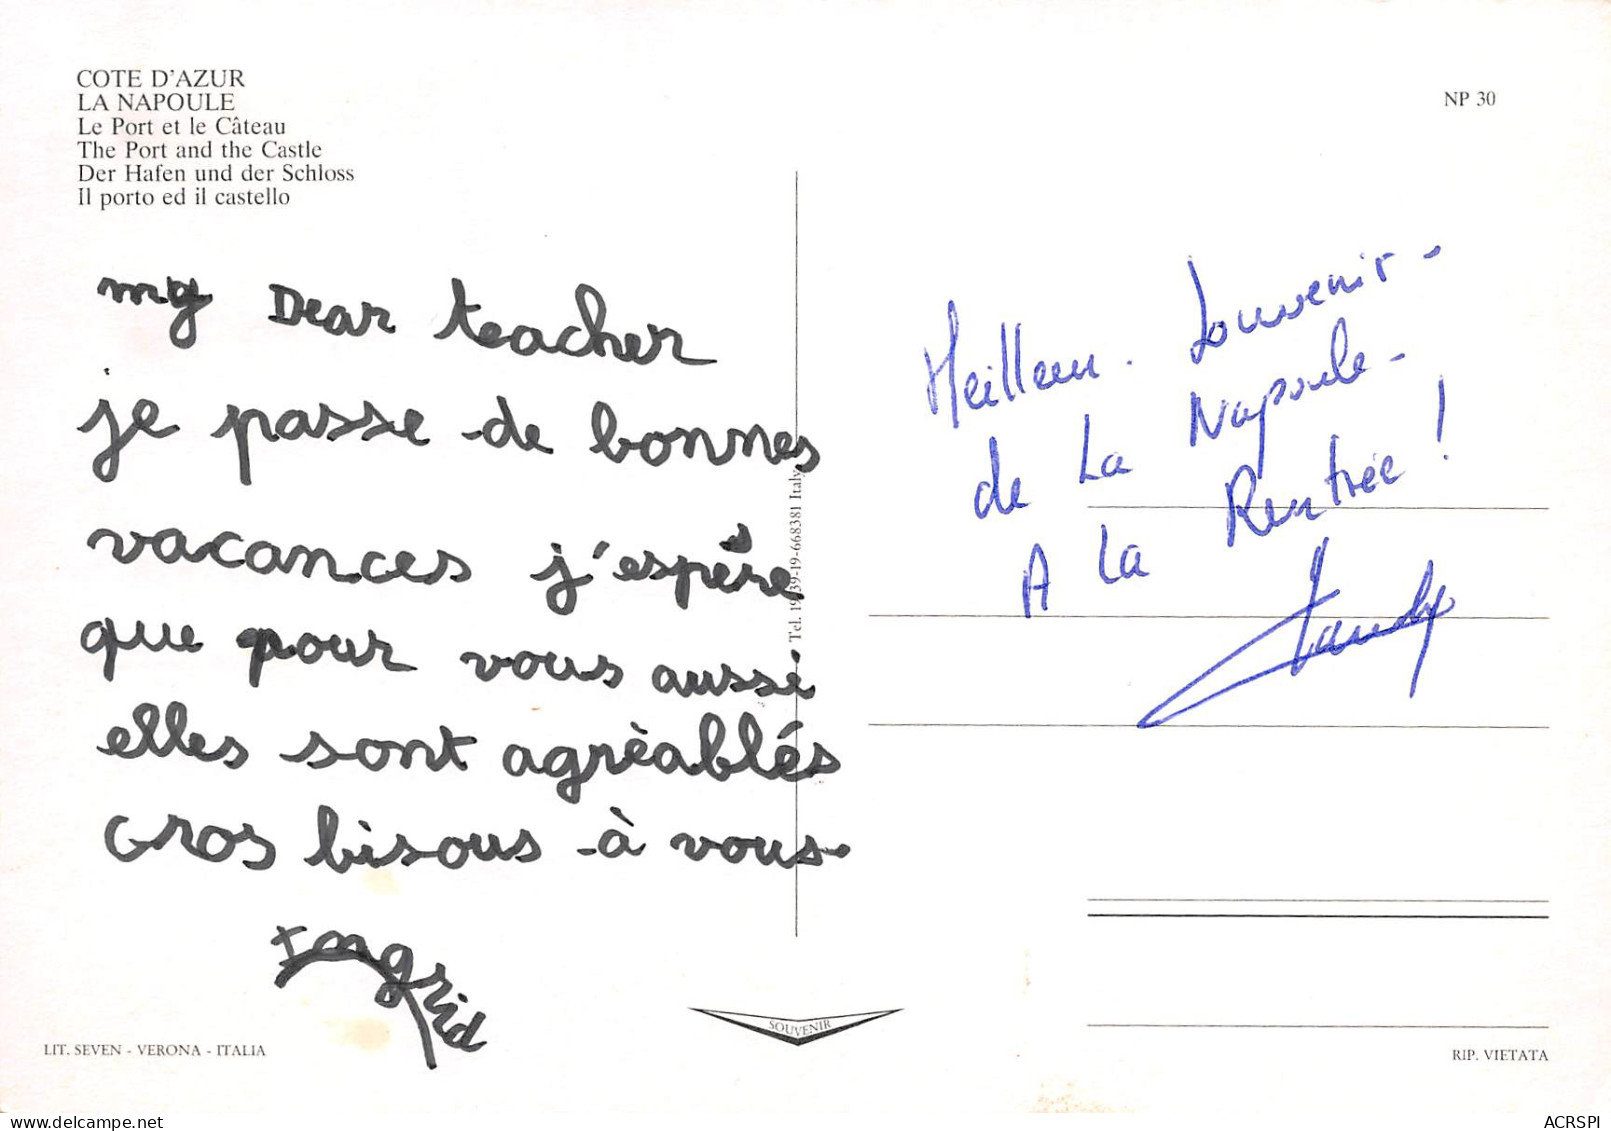 COTE D'AZUR
LA NAPOULE
Le Port et le Câteau
The Port and the Castle
Der Hafen und der Schloss
Il porto ed il castello
NP 30
my Dear teacher
je passe de bonnes
vacances j'espère
que pour vous aussi
elles sont agrèablés
Gros bisous à vous.
Ingrid
Tel. 1939-19-668381 Italy
Meilleur Souvenir -
de La Napoule -
A La Rentrée !
SOUVENIR
LIT. SEVEN - VERONA - ITALIA
RIP. VIETATA
ACRSPI